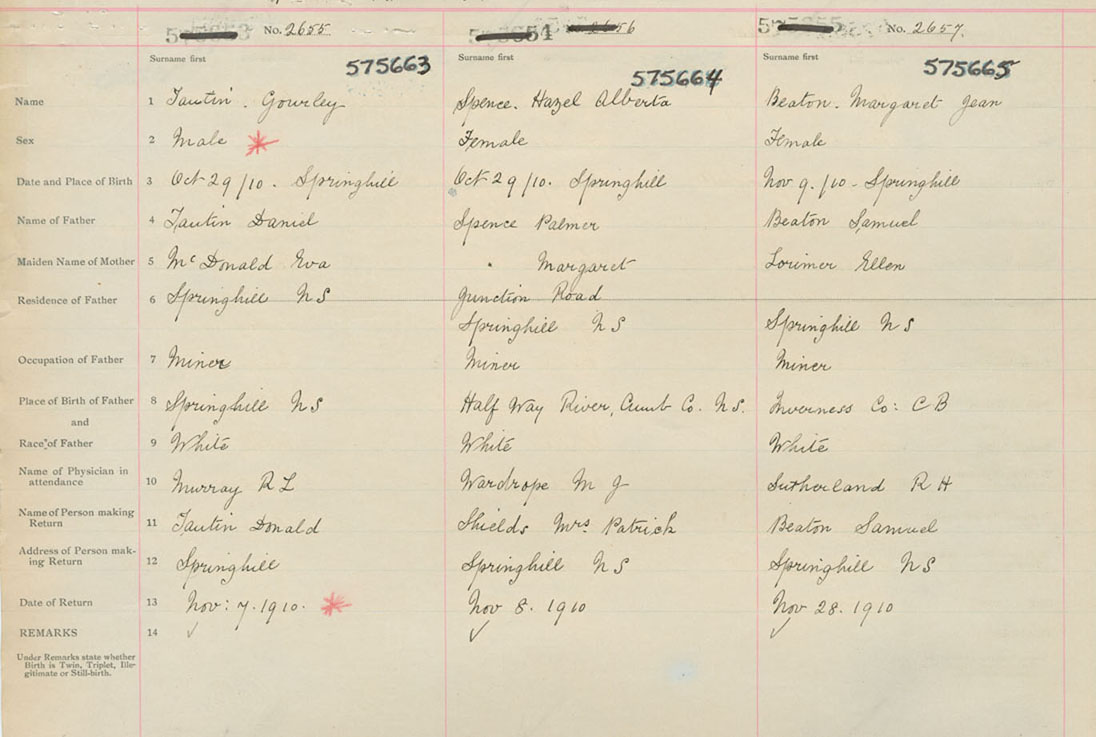 No. 2655
56
No. 2657.
Surname first
Surname first
Surname first
575663
575664
575665
Name 1 Tautin. Gourley Spence. Hazel Alberta Beaton. Margaret Jean
Sex 2 Male Female Female
Date and Place of Birth 3 Oct 29/10. Springhill Oct 29/10. Springhill Nov 9./10 - Springhill
Name of Father 4 Tautin Daniel Spence Palmer Beaton Samuel
Maiden Name of Mother 5 McDonald Eva Margaret Lorimer Ellen
Residence of Father 6 Springhill N S Junction Road
Springhill N S Springhill N S
Occupation of Father 7 Miner Miner Miner
Place of Birth of Father 8 Springhill N S Half Way River, Cumb Co. N.S. Inverness Co: C B
and
Race of Father 9 White White White
Name of Physician in
attendance 10 Murray R L Wardrope M J Sutherland R H
Name of Person making
Return 11 Tautin Donald Shields Mrs Patrick Beaton Samuel
Address of Person mak-
ing Return 12 Springhill Springhill N S Springhill N S
Date of Return 13 Nov: 7. 1910. Nov 8. 1910 Nov 28. 1910
REMARKS 14
Under Remarks state whether
Birth is Twin, Triplet, Ille-
gitimate or Still-birth.